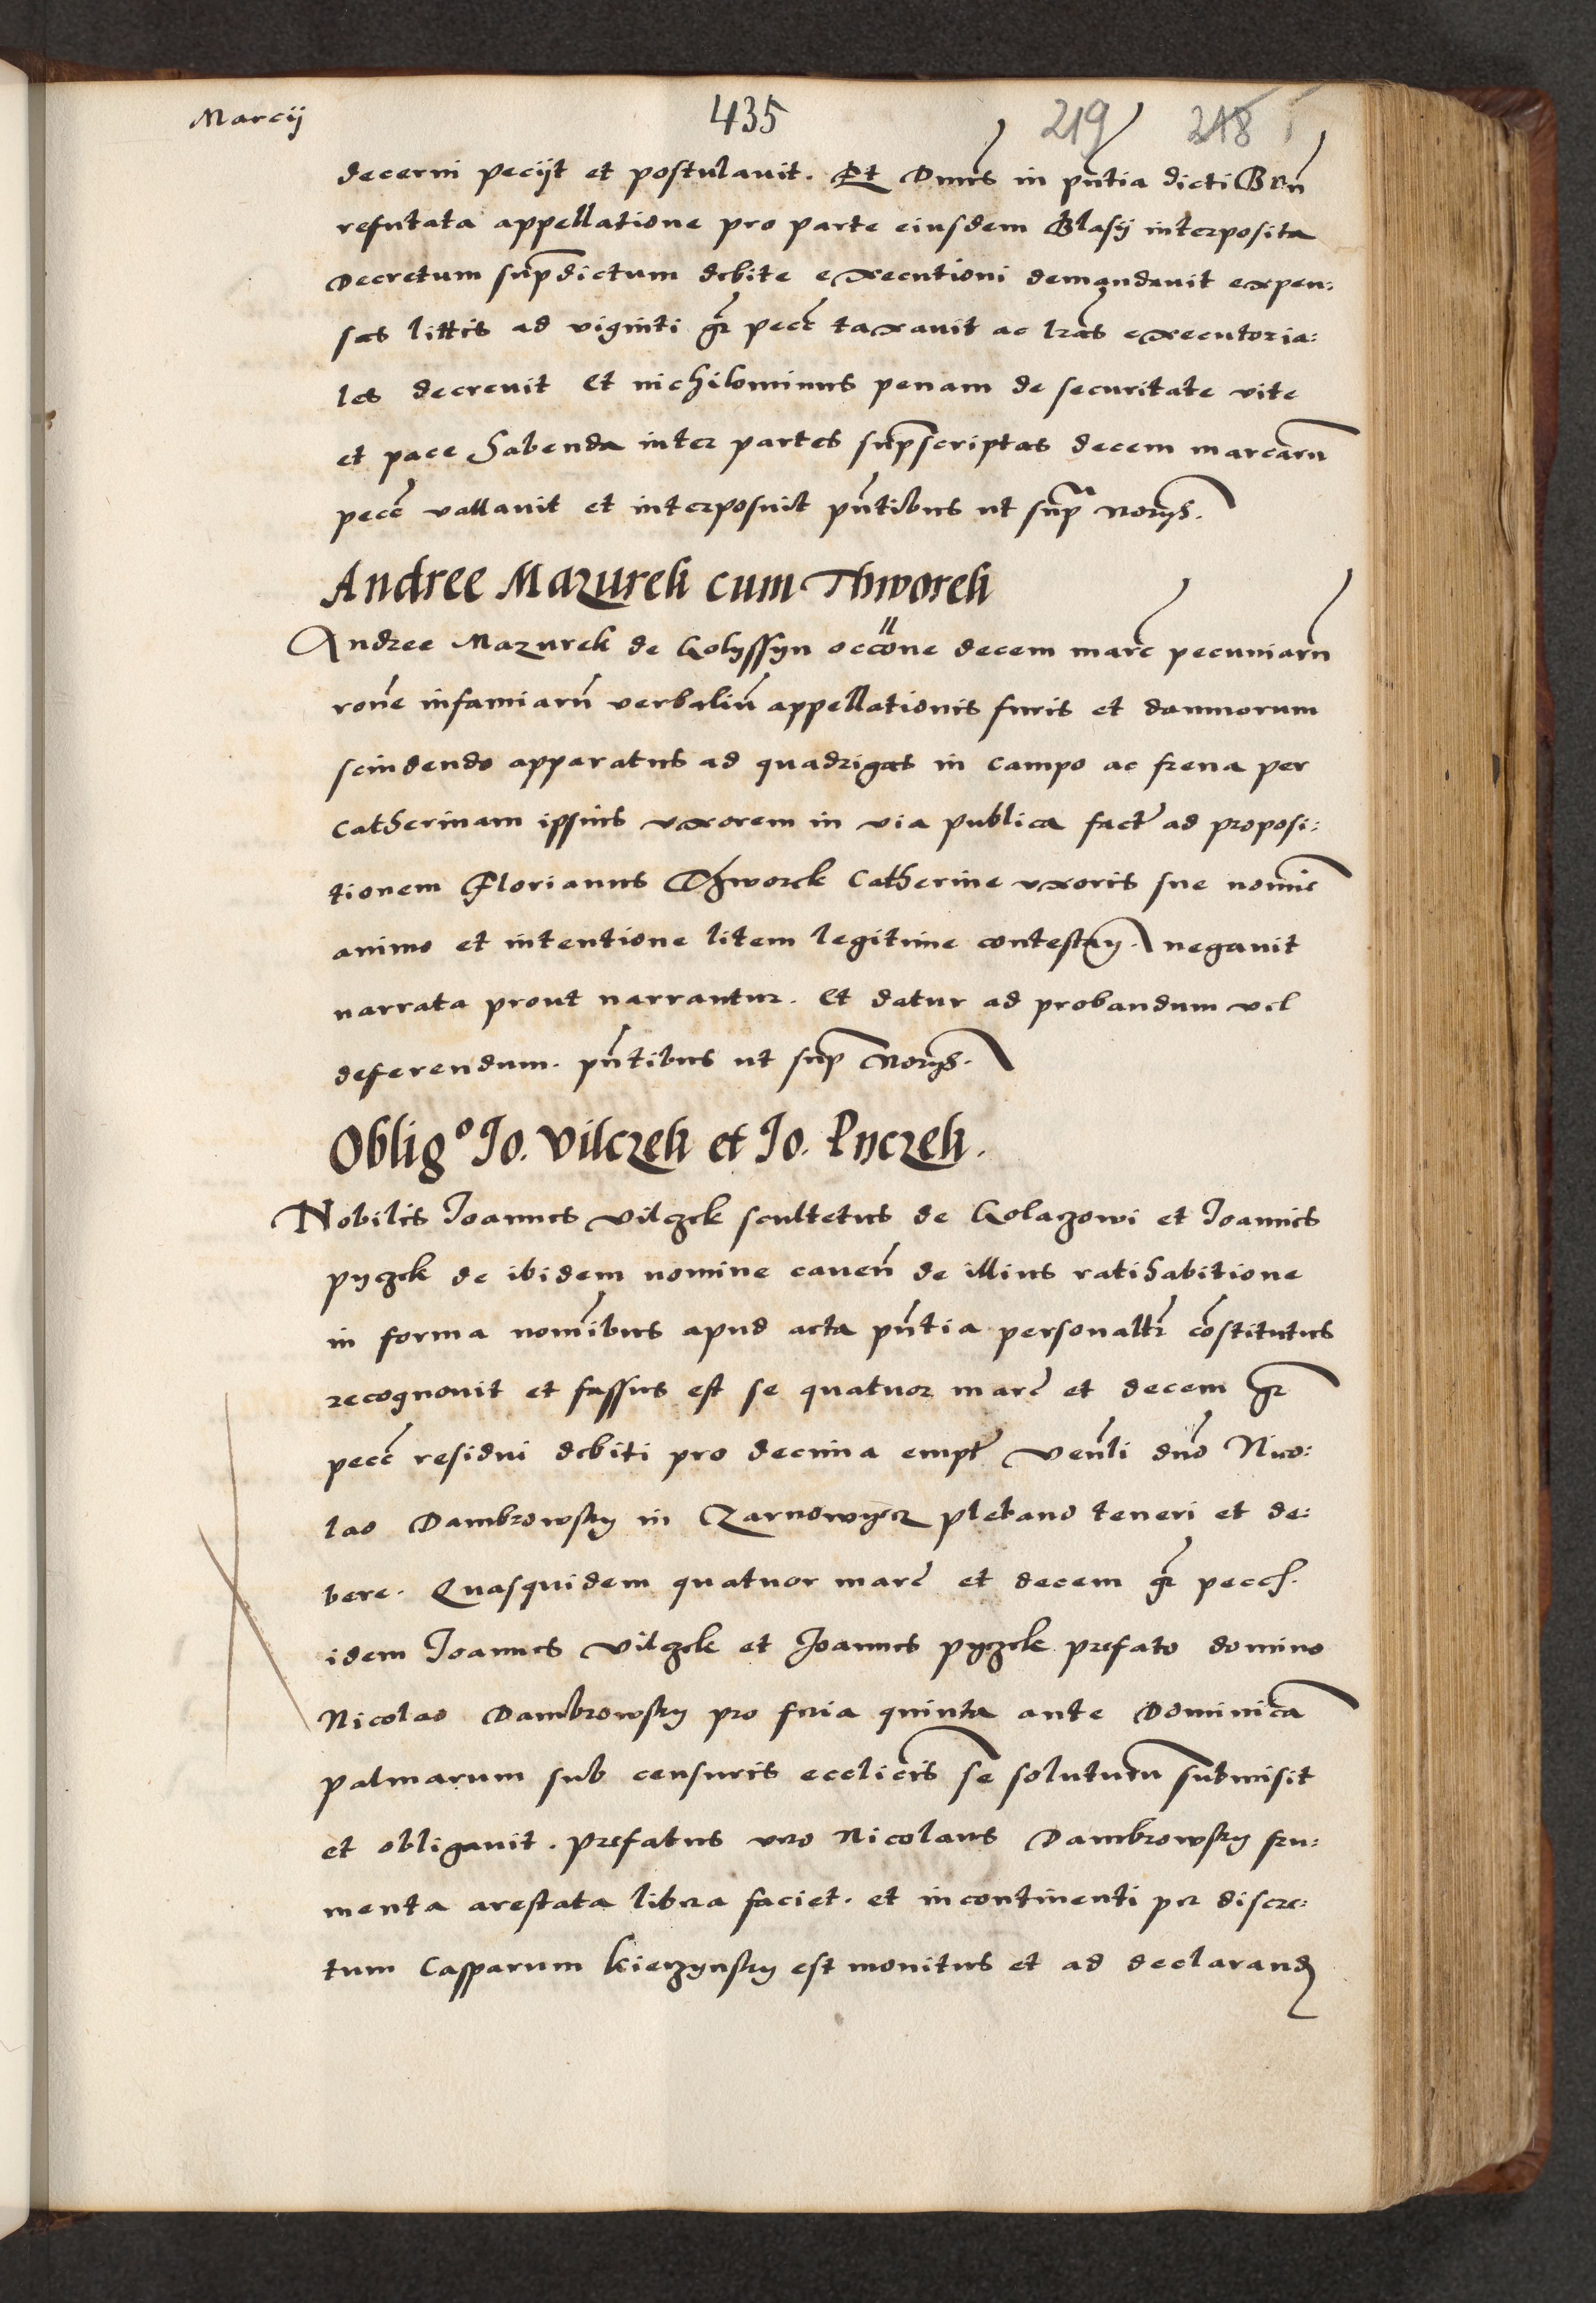 Marcij 435 219 218
decerni pecijt et postulavit. Et Dnus in pntia dicti Ben
refutata appellatione pro parte eiusdem Blasij interposita
Decretum supdictum debite executioni demandavit expen:
sas littis ad viginti gr pecc taxavit ac lras executoria:
les decrevit Et nichilominus penam de securitate vite
et pace habenda inter partes supscriptas decem marcaru
pecc vallavit et interposuit pntibus ut supra Norijs.
Andree Mazurek cum Thworek
Andree Mazurek de Golyssyn occone decem marc pecuniaru
rone infamiaru verbaliu appellationis furis et damnorum
scindendo apparatus ad quadrigas in campo ac frena per
Catherinam ipsius uxorem in via publica fact ad proposi:
tionem Florianus Thworek Catherine uxoris sue nomie
animo et intentione litem legitime contestan. negavit
narrata prout narrantur. Et datur ad probandum vel
deferendum. pntibus ut sup Norijs.
Obligo Jo. Vilczek et Jo. Pyczek.
Nobilis Joannes Vilczek scultetus de Golaczowi et Joannis
pyczek de ibidem nomine caven de illius ratihabitione
in forma nomibus apud acta pntia personalr constitutus
recognovit et fassus est se quatuor marc et decem gr
pecc residui debiti pro decima empt Venli dno Nico:
lao Dambrowsky in Czarnowycz plebano teneri et de:
bere. Quasquidem quatuor marc et decem gr pecc.
idem Joannes Vilczek et Joannes pyczek prefato domino
Nicolao Dambrowsky pro feria quinta ante Dominica
palmarum sub censuris ecclicis se soluturu submisit
et obligavit. prefatus vero Nicolaus Dambrowsky fru:
menta arestata libera faciet. et incontinenti per discre:
tum Casparum Kieczynsky est monitus et ad declarand